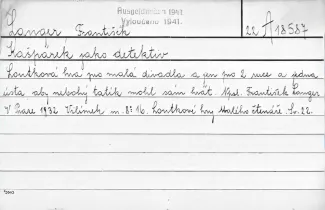 Ausgeschieden 1941.
Vyloučeno 1941.
Langer František
22 A 18587
Kašpárek jako detektiv
Loutková hra pro malá divadla a jen pro 2 ruce a jedna
ústa aby nebohý tatík mohl sám hrát. Naps. František Langer
V Praze 1932 Vilímek m. 8° 16. Loutkové hry Malého čtenáře. Sv. 22.